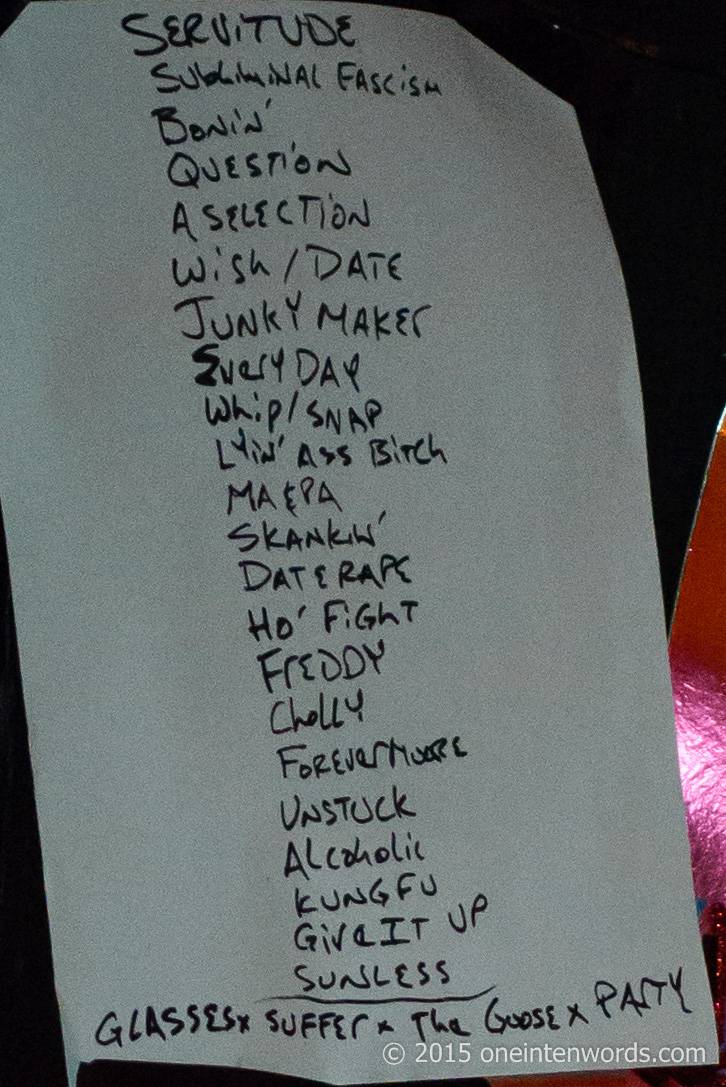 SERVITUDE
SUBLIMINAL FASCISM
BONIN'
QUESTION
A SELECTION
WISH / DATE
JUNKY MAKER
EVERYDAY
WHIP / SNAP
LYIN' ASS BITCH
MA & PA
SKANKIN'
DATE RAPE
HO' FIGHT
FREDDY
CHOLLY
FOREVERMOORE
UNSTUCK
ALCOHOLIC
KUNG FU
GIVE IT UP
SUNLESS
GLASSES x SUFFER x THE GOOSE x PARTY
© 2015 oneintenwords.com